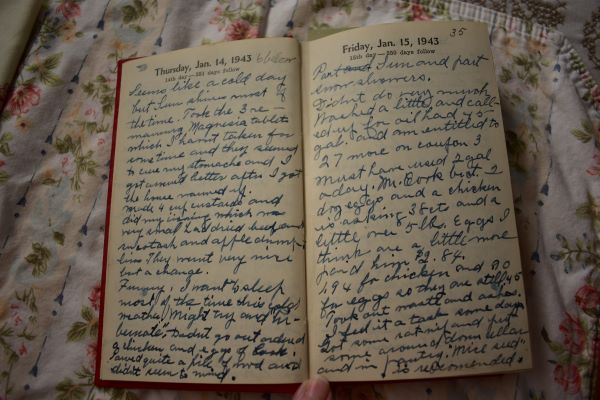 Thursday, Jan. 14, 1943 6 below
14th day—351 days follow
Seems like a cold day
but Sun shines most of
the time. Took the 3 re-
maining Magnesia tablets
which I han't taken for
some time and they seemed
to my stomache and I
got around better after I got
the house warmed up.
Made 4 cup custards and
did my ironing which was
very small had dried beef and
succotash and apple dumpl-
ins They went very nice
but a change.
Funny, I want to sleep
most of the time this cold
weather, Might try and "hi-
bernate", Didnt go out ordered
a chicken and eggs of Cook.
Sawed quite a pile of wood and
didn't seem to mind.
Friday, Jan. 15, 1943 35
15th day—350 days follow
Part and Sun and part
snow showers.
Didn't do very much
Washed a little, and call-
ed up for oil had 45
gal. and am entitled to
27 more on coupon 3
Must have used 2 gal
a day. Mr. Cook bro't 2
doz eggs and a chicken
is asking 38cts and a
little over 5 lb. Eggs I
think are a little more
for'd him $2.84.
1.94 for chicken and 90
for eggs so they are still 45
Took out waste and ashes.
I feel it a task some days
Got some rat nip and put
some around down cellar
and in pantry. "Mice seed"
is recommended.